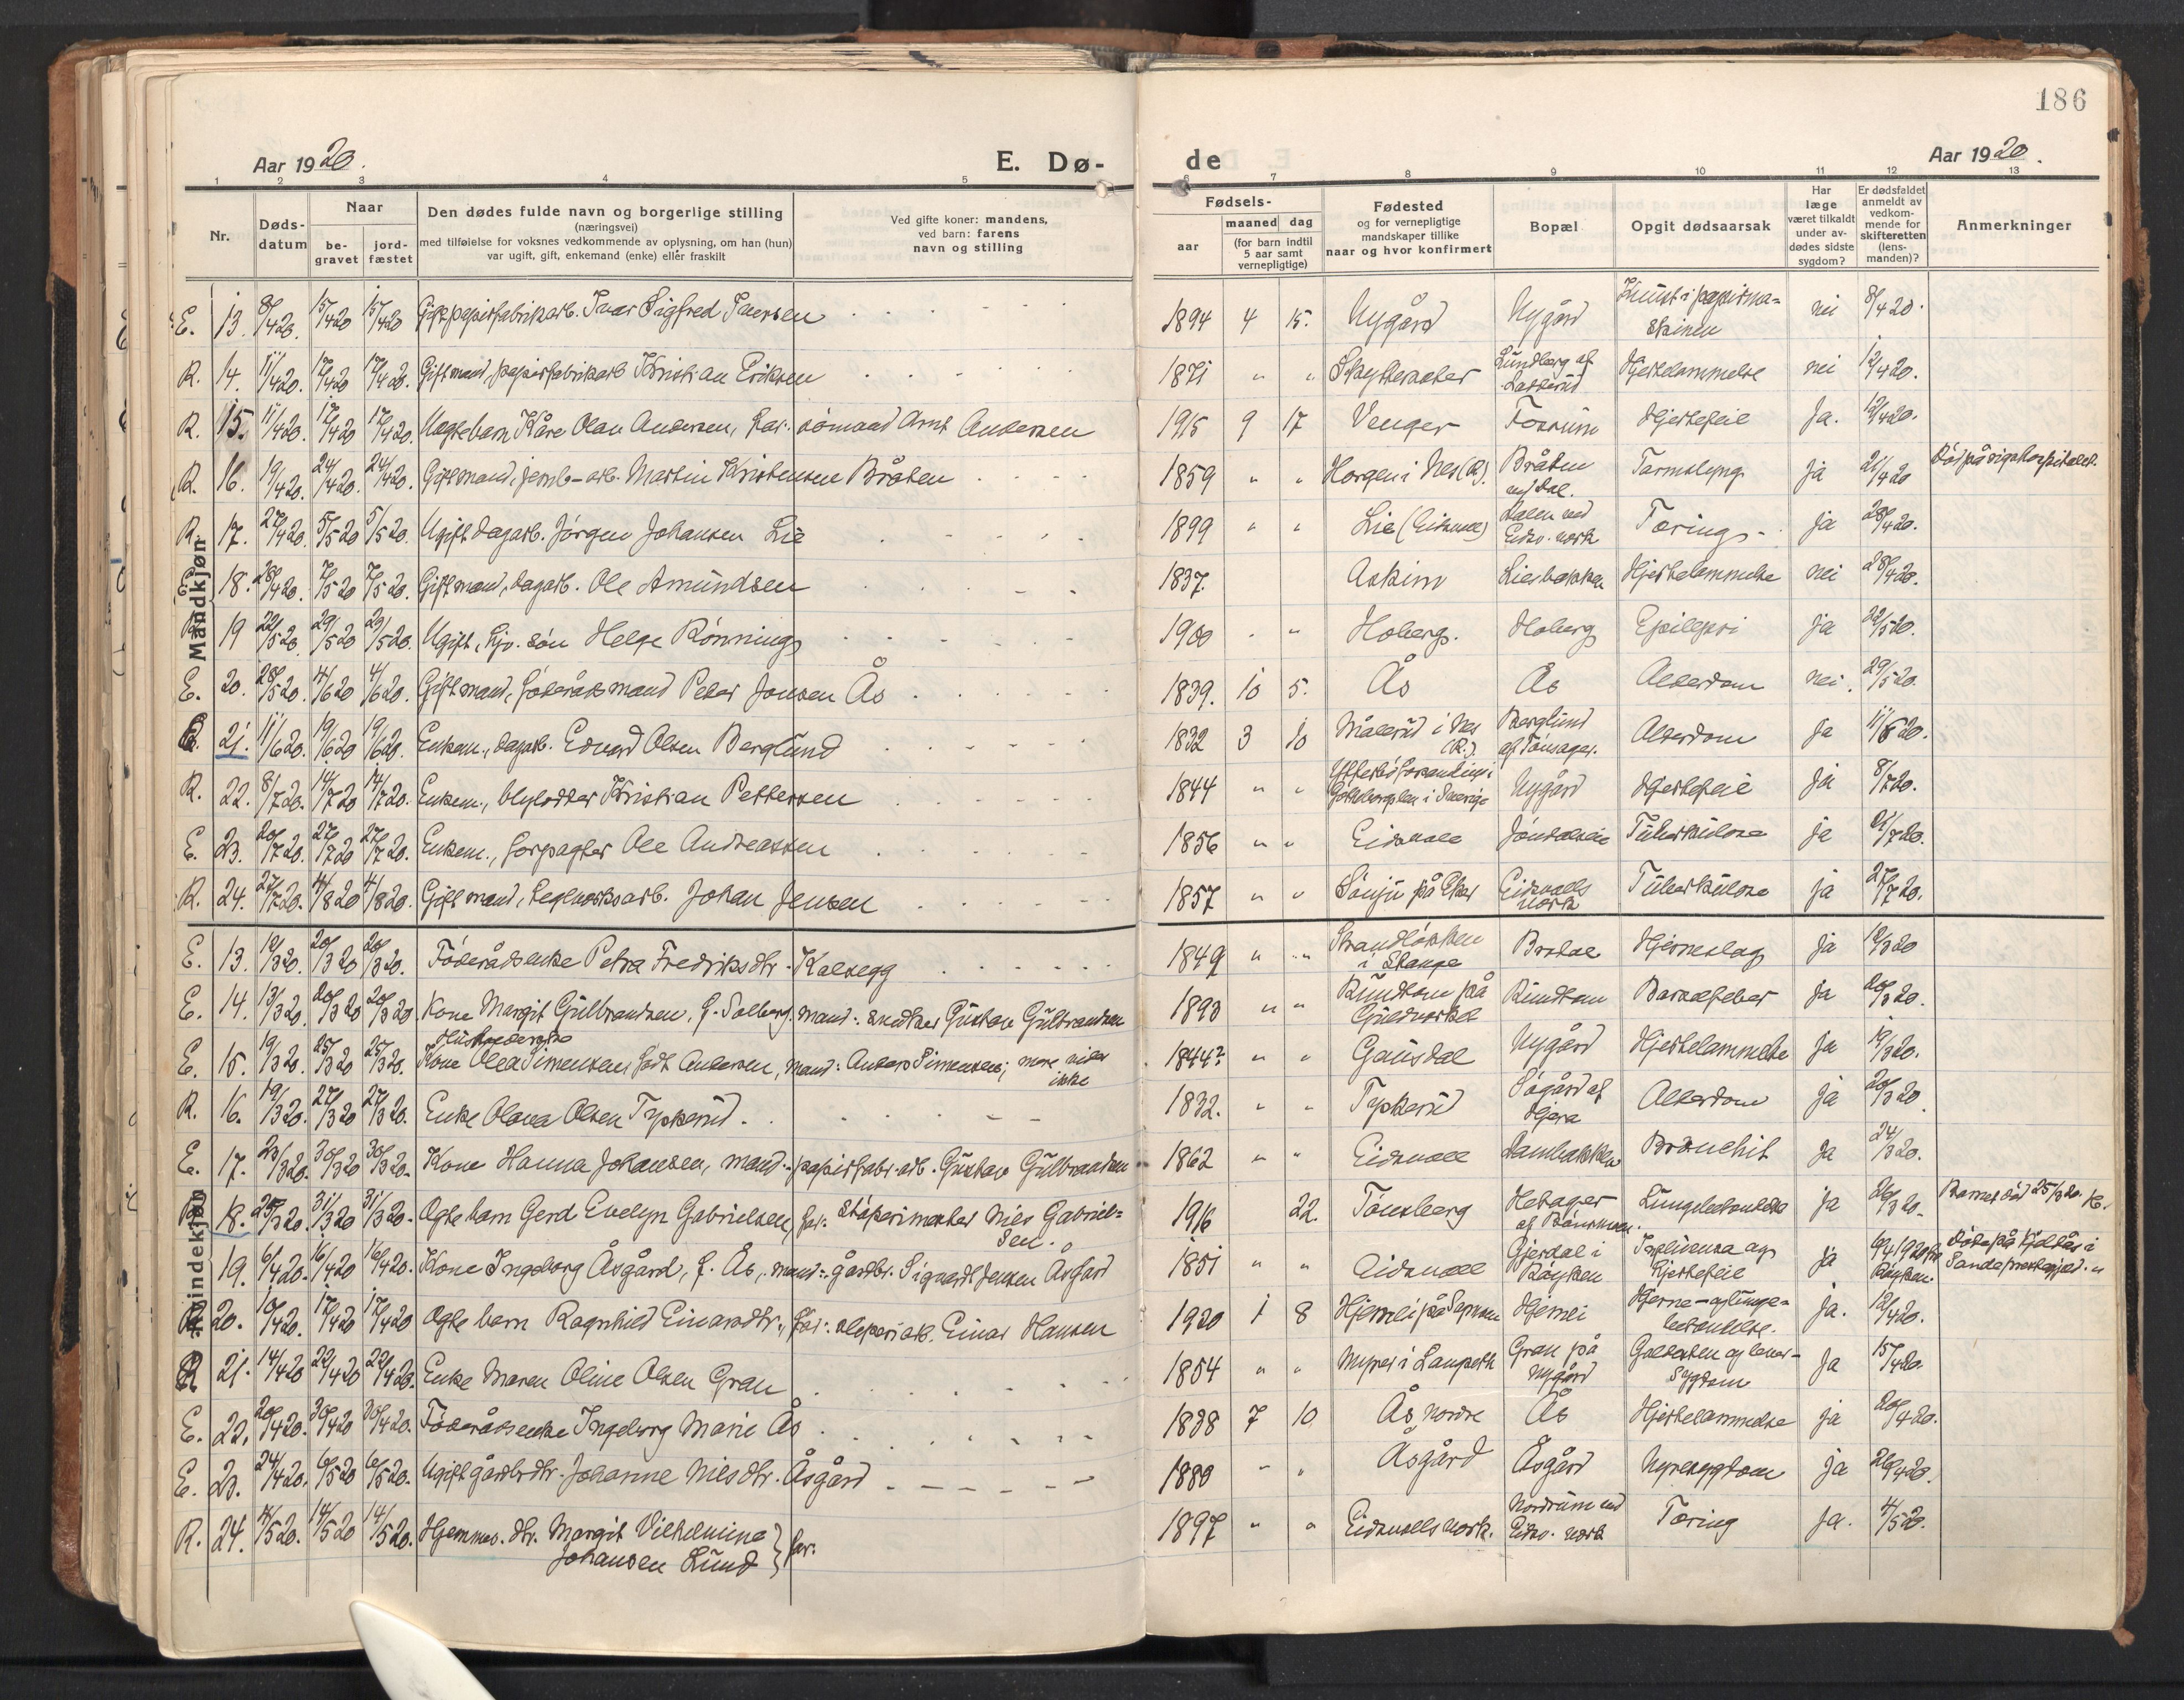 186
Aar 1920.
E. Dø-
de
Aar 1920.
1 2 3 4 5 6 7 8 9 10 11 12 13
Nr.
Døds-
datum
Naar
be-
gravet
jord-
fæstet
Den dødes fulde navn og borgerlige stilling
(næringsvei)
med tilføielse for voksnes vedkommende av oplysning, om han (hun)
var ugift, gift, enkemand (enke) eller fraskilt
Ved gifte koner: mandens,
ved barn: farens
navn og stilling
Fødsels-
aar
maaned dag
(for barn indtil
5 aar samt
vernepligtige)
Fødested
og for vernepligtige
mandskaper tillike
naar og hvor konfirmert
Bopæl
Opgit dødsaarsak
Har
læge
været tilkaldt
under av-
dødes sidste
sygdom?
Er dødsfaldet
anmeldt av
vedkom-
mende for
skifteretten
(lens-
manden)?
Anmerkninger
Mandkjøn
E. 13. 8/4 20. 15/4 20 15/4 20 Gift papirfabrikarb. Ivar Sigfred Iversen 1894 4 15. Nygård Nygård Knust i papirma-
skinen nei 8/4 20.
R. 14. 11/4 20. 17/4 20 17/4 20. Gift mand, papirfabrikarb Kristian Eriksen 1871 " " Nygård af nei 12/4 20.
R. 15. 11/4 20. 17/4 20 17/4 20. Ungtebarn Kåre Olav Andersen, Far: sömand Arnt Andersen 1915 9 17 Venger Fossum Hjertefeil Ja. 12/4 20.
R. 16. 19/4 20. 24/4 20. 24/4 20. Gift mand, jernb-arb. Martin Kristensen Bråten 1859 " " Horgen i Nes (R). Bråten
v/ Dal. Tarmslyng ja 21/4 20 Död på rigshospitalet.
R. 17. 27/4 20. 5/5 20 5/5 20. Ugift dagarb. Jörgen Johansen Lie 1899 " " Lie (Eidsvoll) Dalen ved
Eidsv. verk Tæring - ja 28/4 20.
E. 18. 28/4 20. 7/5 20 7/5 20. Gift mand, dagarb. Ole Amundsen 1837. Askim Liesbakken Hjertelammelse nei 28/4 20.
R. 19 22/5 20. 29/5 20 29/5 20. Ugift, sön Helge Rönnings 1900 " " Hoberg. Hoberg Epilepsi ja 22/5 20.
E. 20. 28/5 20. 4/6 20 4/6 20. Gift mand, föderådsmand Peder Jonsen Ås 1839. 10 5. Ås Ås Alderdom nei. 29/5 20.
R. 21. 11/6 20. 19/6 20 19/6 20. Enkem., dagarb. Edvard Olsen Berglund 1832 3 10 Målerud i Nes
(R.). Berglund
af Tönsager. Alderdom ja 11/6 20.
R. 22. 8/7 20. 14/7 20 14/7 20. Enkem., Kristian Pettersen 1844 " " i
i Sverige Nygård Hjertefeil ja 8/7 20.
E. 23. 20/7 20. 27/7 20 27/7 20. Enkem., forpagter Ole Andreassen 1856 " " Eidsvoll Tuberkulose ja 21/7 20.
R. 24. 27/7 20. 4/8 20 4/8 20. Gift mand, teglverksarb. Johan Jensen 1857 " " på Eker Eidsvolls
verk Tuberkulose ja 27/7 20.
Kvindekjøn
E. 13. 12/3 20. 20/3 20 20/3 20. Föderådsenke Petra Fredriksdtr. Kalsegg 1849 " " Strandlökken
i Stange Brodal Hjerneslag ja 12/3 20
E. 14. 13/3 20. 20/3 20 20/3 20. Kone Margit Gulbrandsen, f. Solberg. mand: snedker Gustav Gulbrandsen 1893 " " Rundtom på
Guldverket Rundtom Barselfeber ja 20/3 20.
E. 15. 19/3 20. 25/3 20 25/3 20. Kone Olea Simensen, födt Andersen, mand: Anders Simensen; mere vides
ikke 1844? " " Gausdal Nygård Hjertelammelse ja 19/3 20.
R. 16. 19/3 20. 27/3 20 27/3 20. Enke Olava Olsen Tykerud. 1832. " " Tykerud Sögård af
Alderdom ja 20/3 20
E. 17. 23/3 20. 30/3 20 30/3 20. Kone Hanna Johansen, mand: papirfabr. arb. Gustav Gulbrandsen 1862 " " Eidsvoll Dambakken Bronchit ja 24/3 20.
18. 25/3 20. 31/3 20 31/3 20. Ægte barn Gerd Evelyn Gabrielsen, far: Stöperimester Nils Gabriel=
sen. 1916 22. Tönsberg Hebager
af Lungebetændelse ja 26/3 20. Barnet död 25/3 20.
19. 6/4 20. 16/4 20 16/4 20. Kone Ingeborg Åsgård, f. Ås, mand: gårdbr. Sigvardt Jensen Åsgård 1851 " " Eidsvoll Gjerdal i
Röyken Influensa og
hjertefeil ja 6/4 1920
Röyken. Döde på i
Sande prestegjeld.
20. 10/4 20. 17/4 20 17/4 20 Ægte barn Ragnhild Einarsdtr., far: sleperiarb. Einar Hansen 1920 1 8 Hjemli på Hjemli Hjerne- og lunge=
betændelse. ja. 12/4 20.
R 21. 14/4 20 22/4 20 22/4 20. Enke Maren Oline Olsen Gran 1854 " " Myrer i Langseth Gran på
Nygård Galdesten og lever-
sygdom ja 15/4 20.
E. 22. 20/4 20. 30/4 20 30/4 20. Föderådsenke Ingeborg Marie Ås 1838 7 10 Ås nordre Ås Hjertelammelse ja 20/4 20.
E. 23. 24/4 20. 6/5 20 6/5 20. Ugift gårdbrdtr. Johanne Nilsdtr. Åsgård 1889 " " Åsgård Åsgård Nyresygdom ja 26/4 20.
R. 24. 4/5 20. 14/5 20 14/5 20. Hjemmev. dtr. Margit Vilhelmine
Johansen Lund } far. 1897 " " Eidsvolls verk. Nordrum ved
Eidsv. verk Tæring ja. 4/5 20.